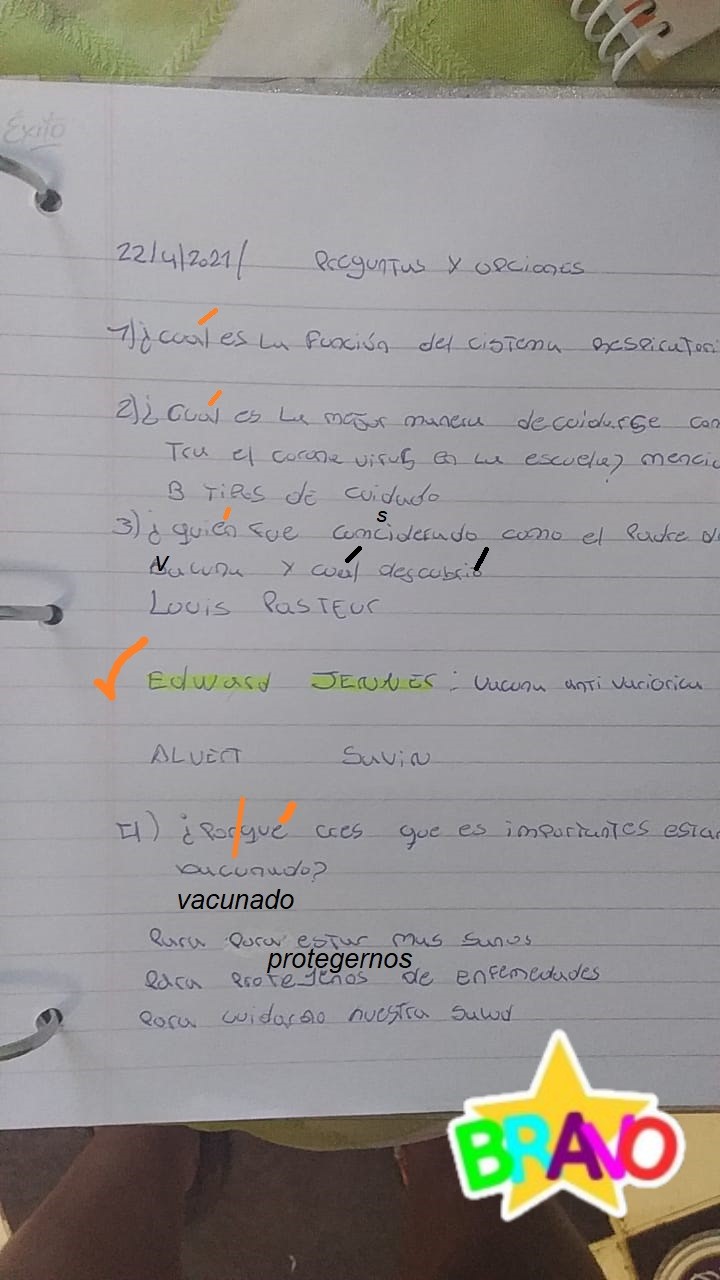 Éxito
22/4/2021/ Preguntas y opciones
1)¿cuál es la función del cistema respiratori
2)¿cuál es la major manera de coidarse con
Tra el corona virus en la escuela? mencio
3 Tipos de cuidado
s
3)¿quién fue considerado como el Padre d
vacuna y cuál descubrió
Louis PasTEur
Edward JENNER: vacuna anti variorica
ALVERT Savin
4) ¿Porqué crees que es importantes estar
bacunado?
vacunado
Para Porar estar mas sanos
protegernos
Para proTejenos de enfemedades
Para cuidar no nuestra salud
BRAVO